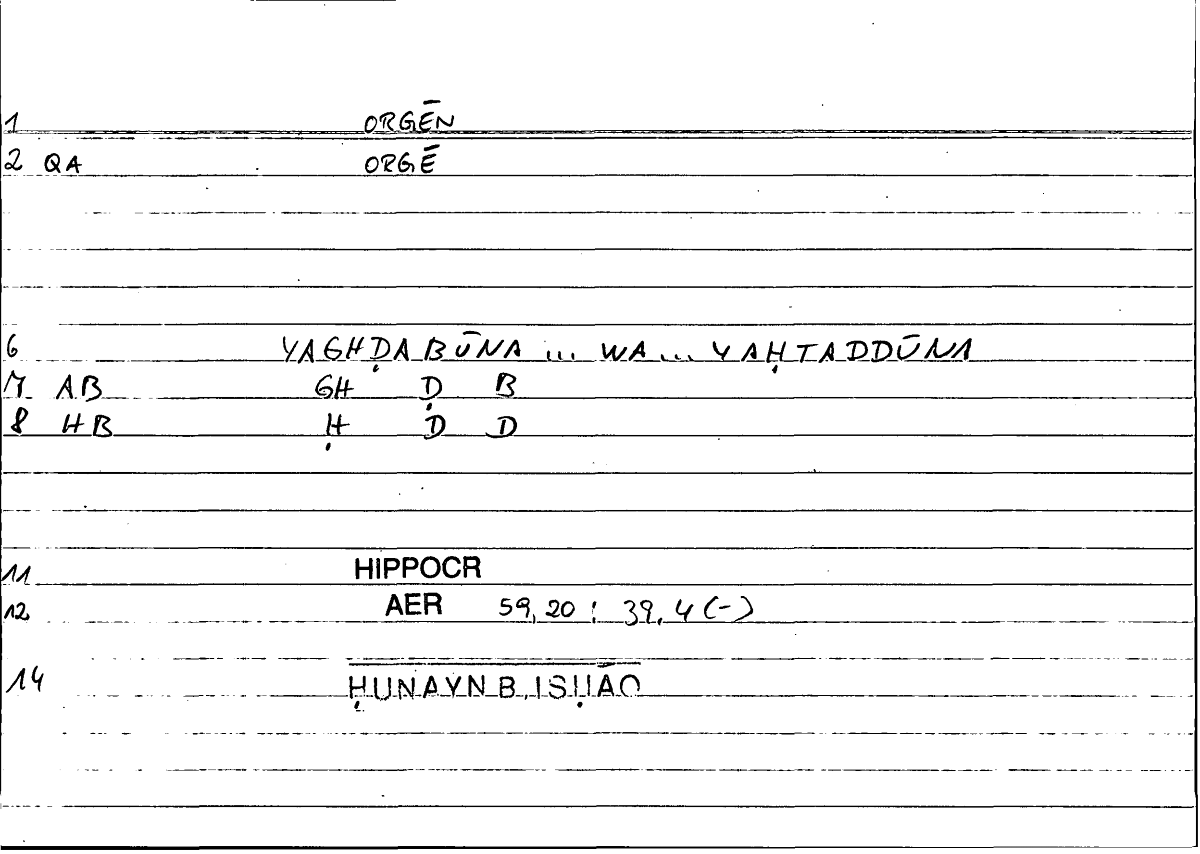 1 ORGĒN
2 QA ORGĒ
6 YAGHḌABŪNA ... WA ... YAḤTADDŪNA
7 AB GH Ḍ B
8 HB Ḥ D D
11 HIPPOCR
12 AER 59,20 : 39,4 (-)
14 ḤUNAYN B. ISḤĀQ